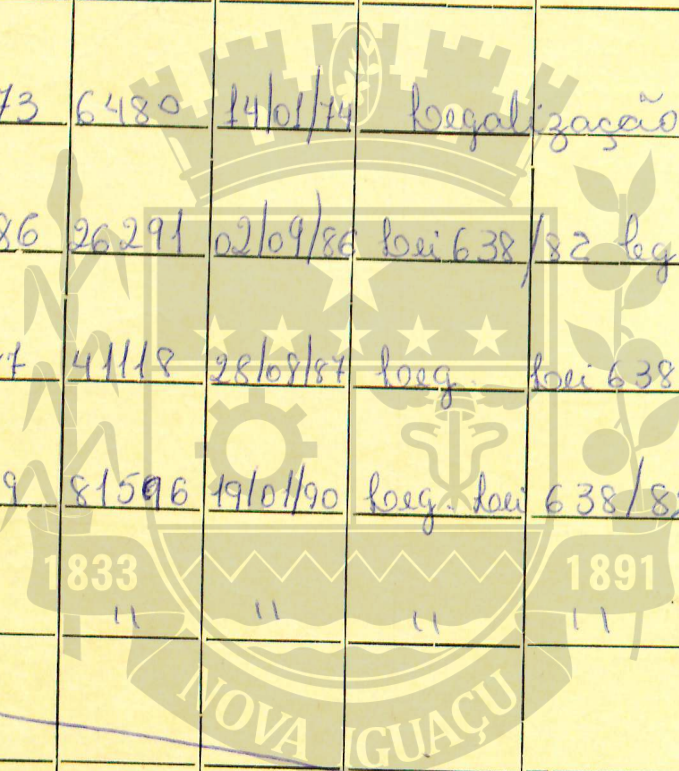 73 6480 14/01/74 Legalização
86 26291 02/09/86 Lei 638/82 leg
7 41118 28/08/87 Leg. Lei 638
9 81596 19/01/90 Leg. Lei 638/82
1833 1891
" " " "
NOVA IGUAÇU